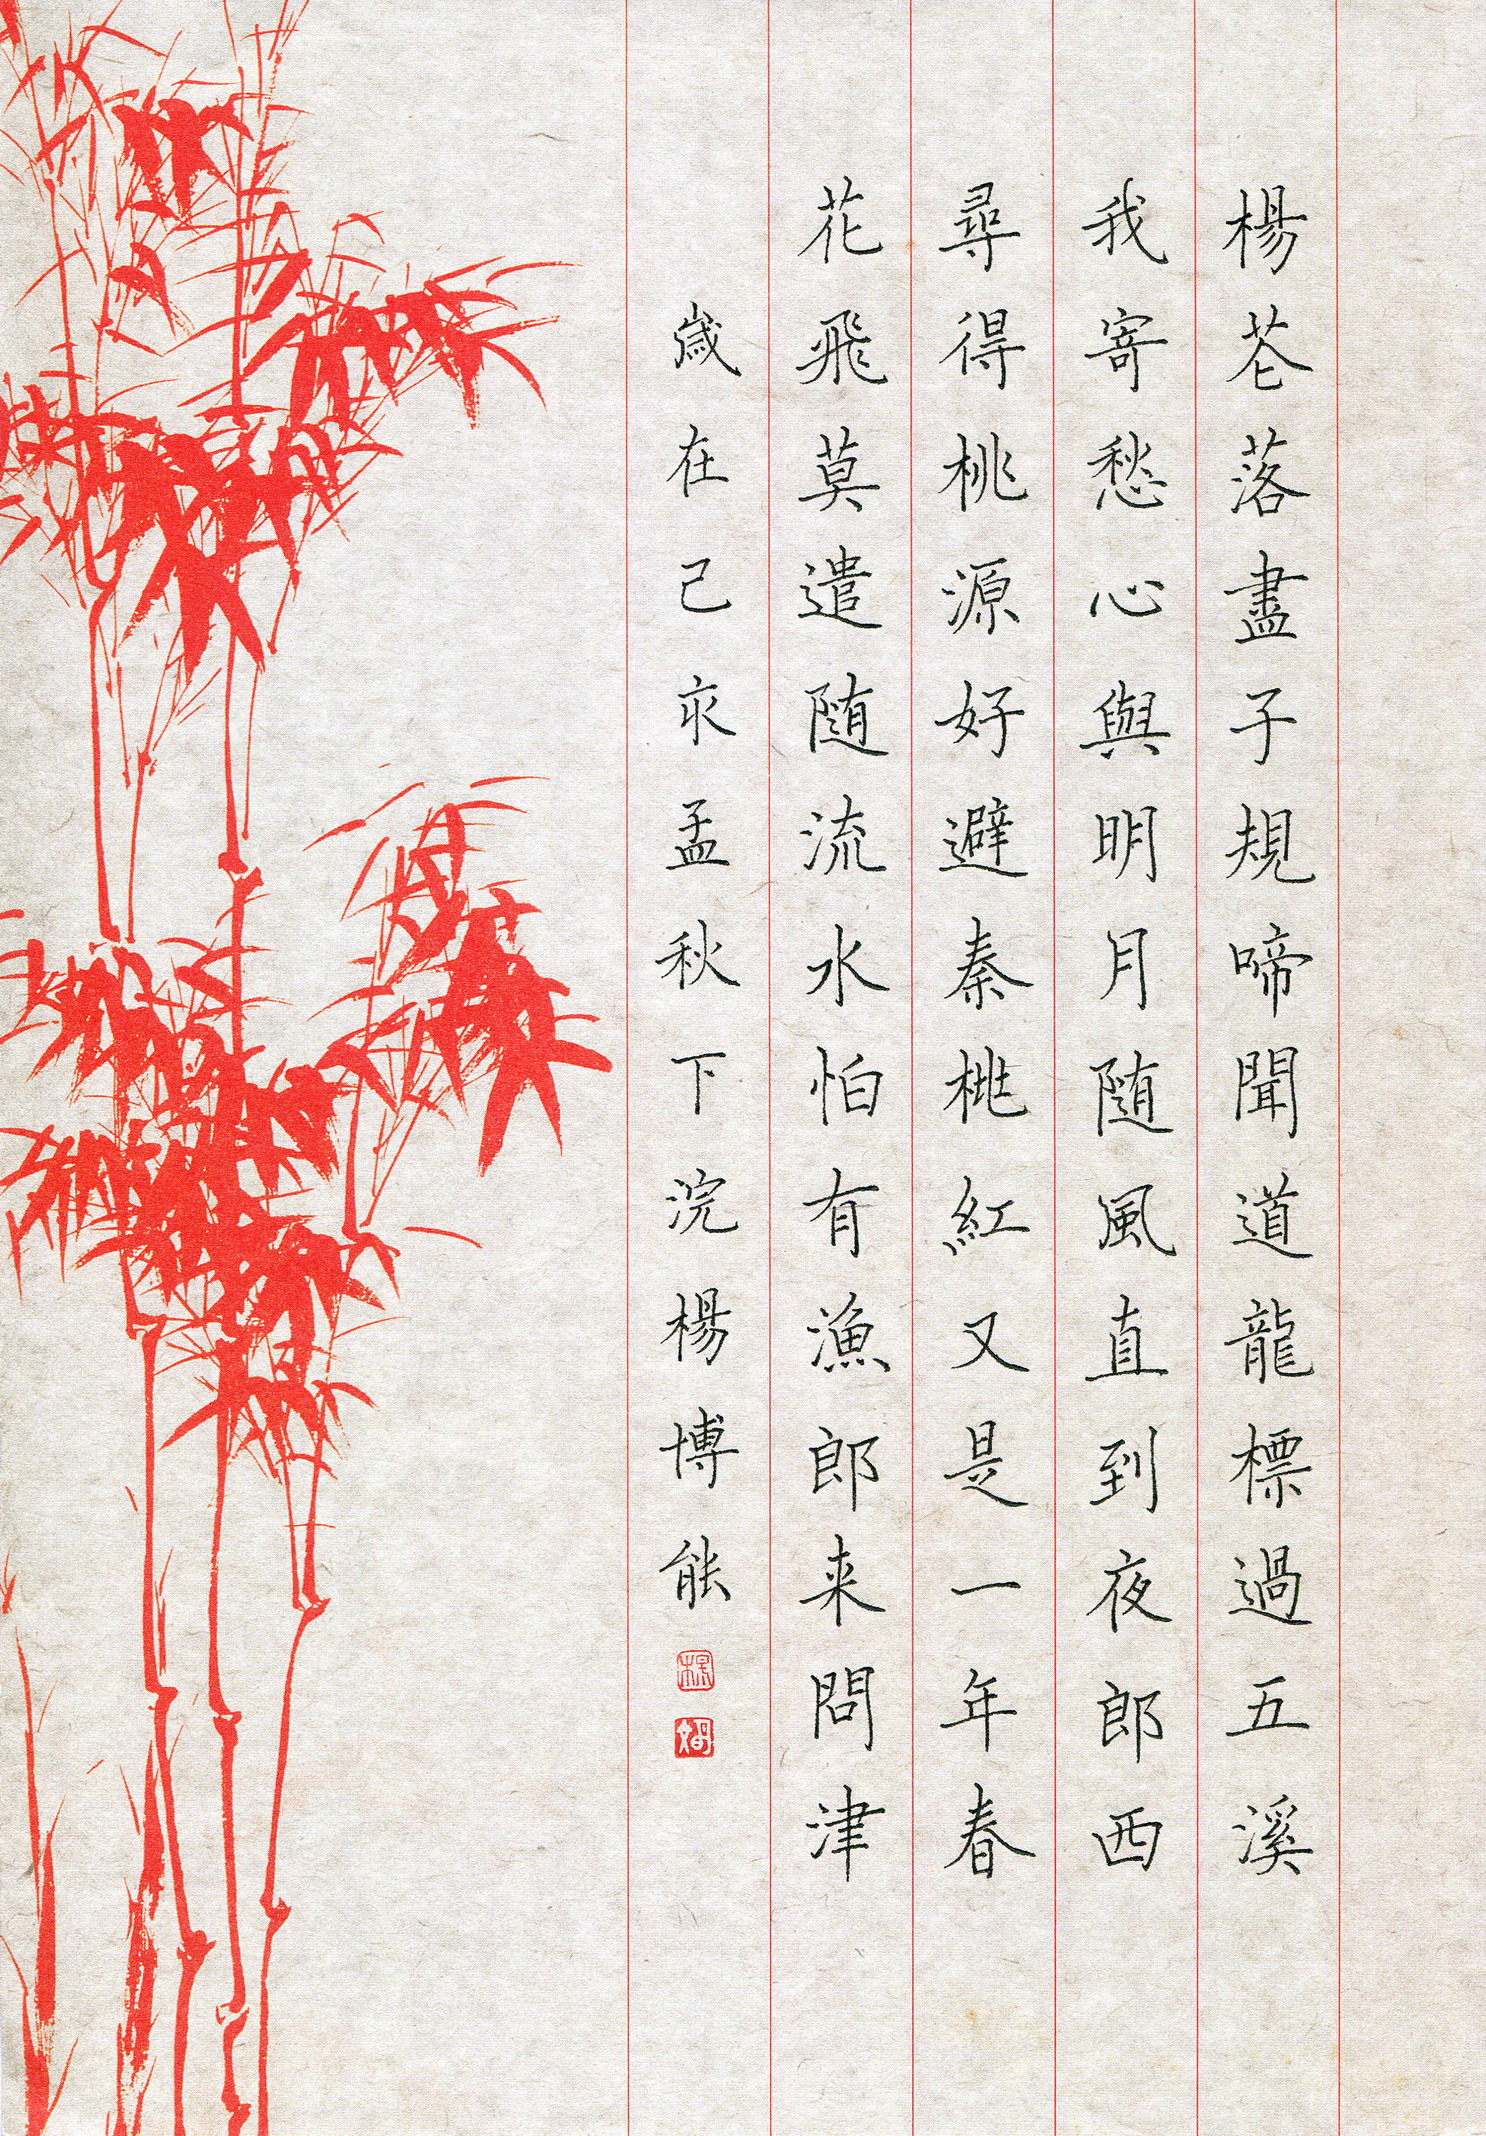 楊芲落盡子規啼聞道龍標過五溪
我寄愁心與明月随風直到夜郎西
尋得桃源好避秦桃紅又是一年春
花飛莫遣随流水怕有漁郎来問津
歲在己亥孟秋下浣楊博能
楊